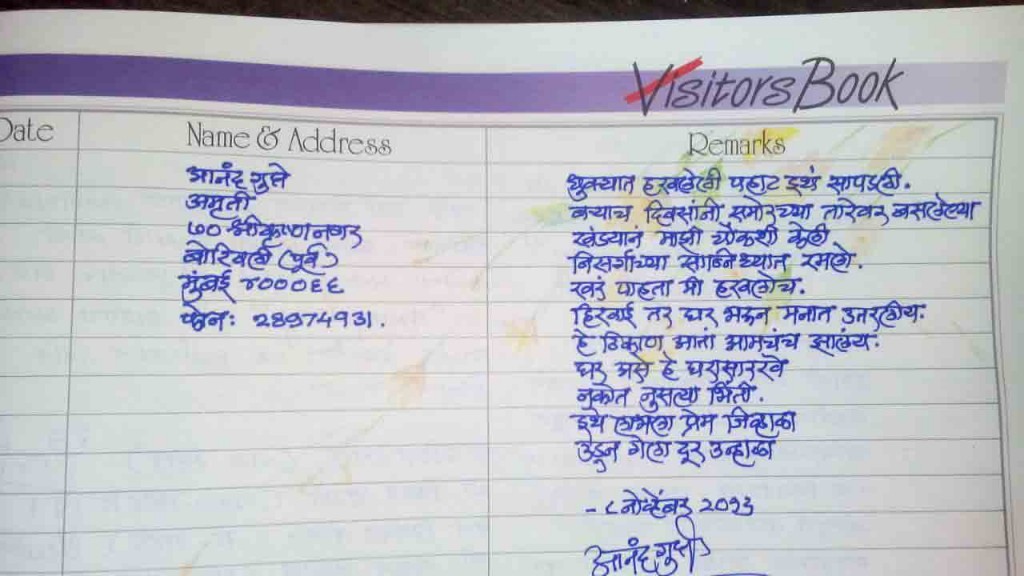 Visitors Book
Date
Name & Address
Remarks
आनंद गुप्ते
अमृती
७० श्रीकृष्णनगर
बोरिवली (पूर्व)
मुंबई ४०००६६
फोन: 28974931.
धुक्यात हरवलेली पहाट इथं सापडली.
बऱ्याच दिवसांनी समोरच्या तारेवर बसलेल्या
खंड्यानं माझी चौकशी केली
निसर्गाच्या सान्निध्यात रमलो.
खरं पाहता मी हरवलोच.
हिरवाई तर घर भरून मनात उतरलीय.
हे ठिकाण आता आमचंच झालंय.
घर असे हे घरासारखे
नुकोत नुसत्या भिंती.
इथे लाभला प्रेम जिव्हाळा
उडुन गेला दूर उन्हाळा
- ८ नोव्हेंबर 2013
आनंद गुप्ते